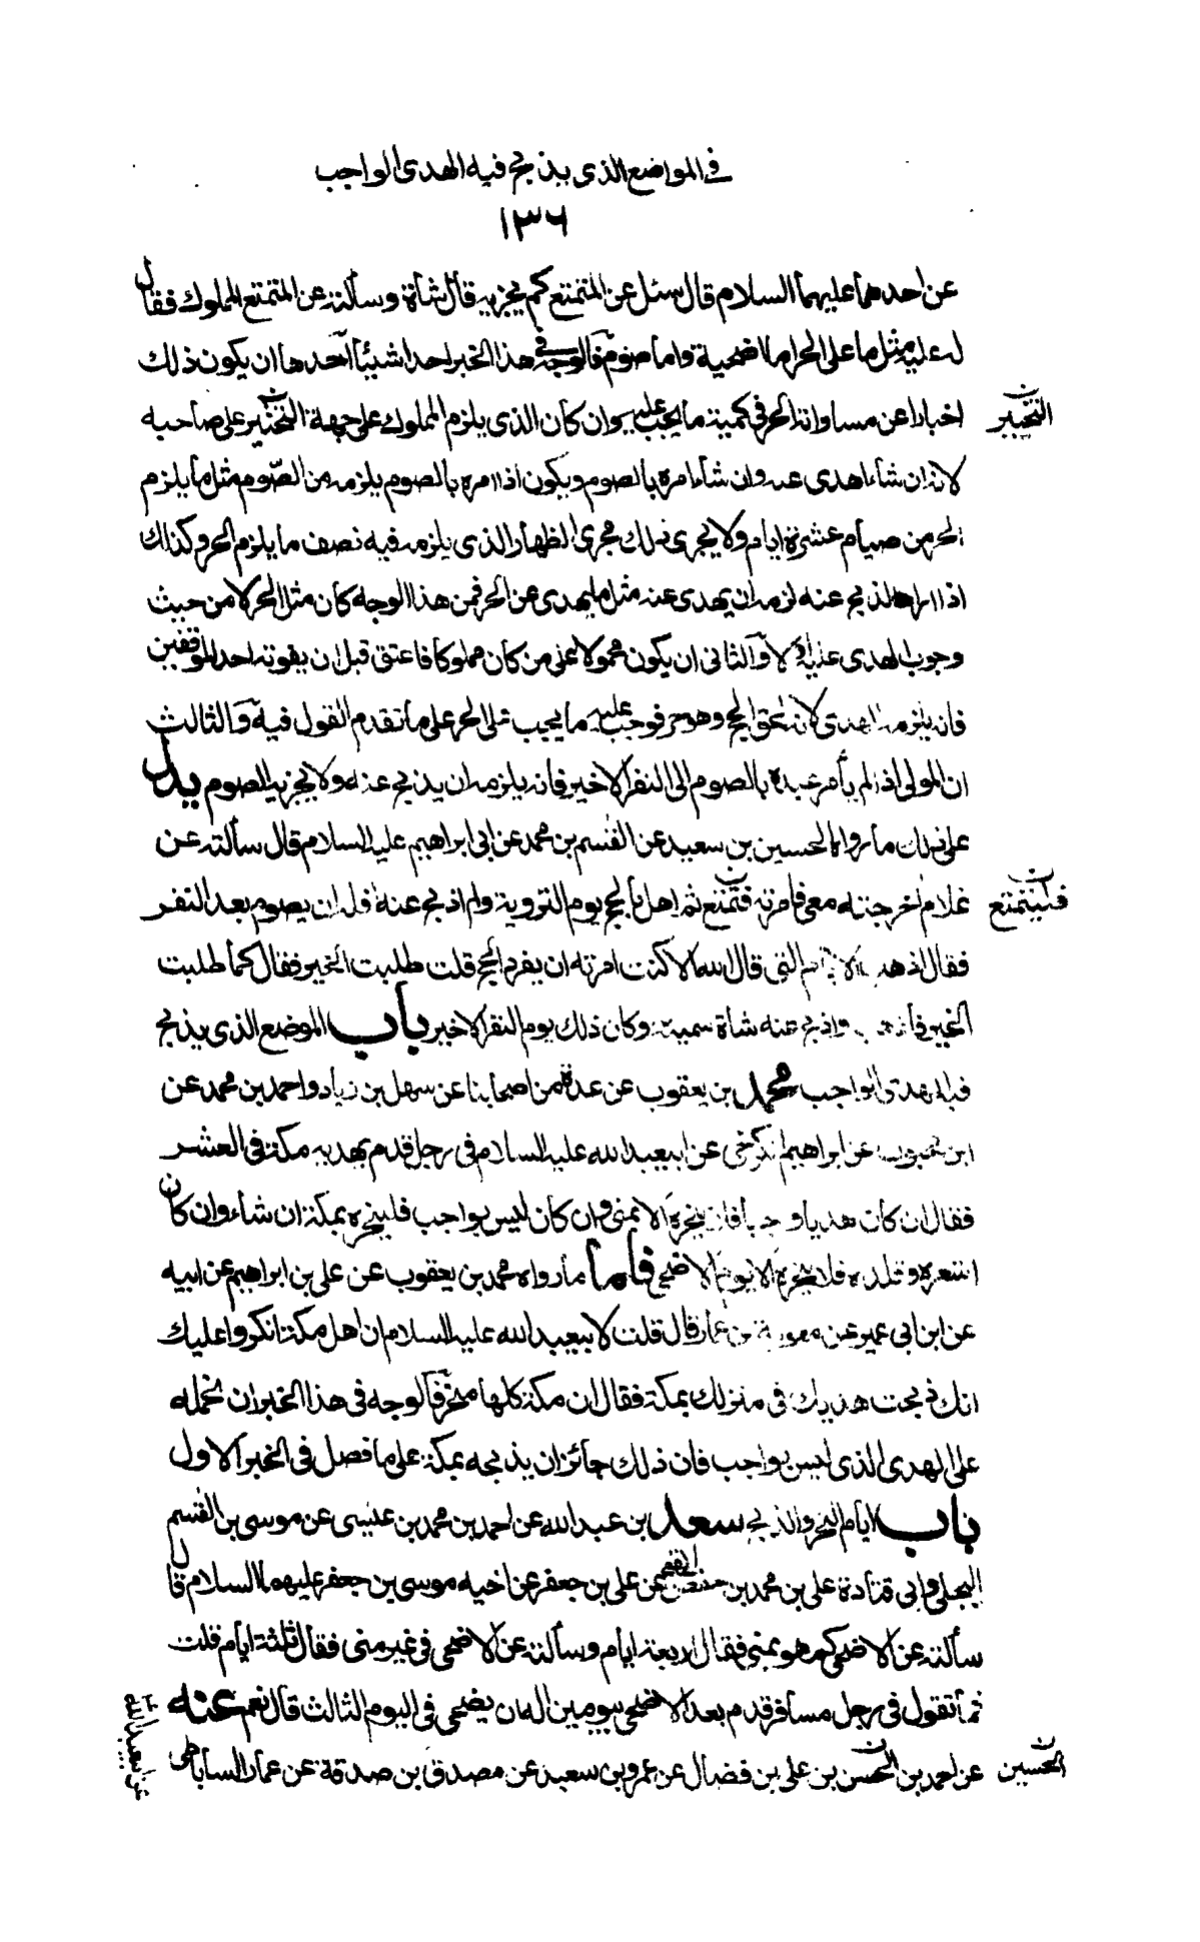 في المواضع الذى يذبح فيه الهدى الواجب
١٣٦
عن احدهما عليهما السلام قال سئل عن المتمتع كم يجزيه قال شاة وسألته عن المتمتع المملوك فقال
عليه مثل ما على الحر اما اضحية واما صوم فالوجه فى هذا الخبر احد اشياء احدها ان يكون ذلك
اخبارا عن مساواته الحر فى كمية ما يجب عليه وان كان الذى يلزم المملوك على جهة التخيير على صاحبه
التخيير
لانه ان شاء اهدى عنه وان شاء امره بالصوم ويكون اذا امره بالصوم يلزمه من الصوم مثل ما يلزم
الحر من صيام عشرة ايام ولا يجرى ذلك مجرى الظهار الذى يلزمه فيه نصف ما يلزم الحر وكذلك
اذا اراد الذبح عنه لزمه ان يهدى عنه مثل ما يهدى عن الحر فمن هذا الوجه كان مثل الحر لا من حيث
وجوب الهدى عليه اولا والثانى ان يكون محمولا على من كان مملوكا فاعتق قبل ان يفوته احد الموقفين
فانه يلزمه الهدى لانه لحق الحج وهو حر فوجب عليه ما يجب على الحر على ما تقدم القول فيه والثالث
ان المولى اذا لم يأمر عبده بالصوم الى النفر الاخير فانه يلزمه ان يذبح عنه ولا يجزيه الصوم يدل
على ذلك ما رواه الحسين بن سعيد عن القسم بن محمد عن ابى ابراهيم عليه السلام قال سألته عن
غلام اخرجته معى فامرته فتمتع ثم اهل بالحج يوم التروية ولم اذبح عنه فله ان يصوم بعد النفر
فليتمتع
فقال ذهبت الايام التى قال الله الا كنت امرته ان يفرد الحج قلت طلبت الخير فقال كما طلبت
الخير فاذهب واذبح عنه شاة سمينة وكان ذلك يوم النفر الاخير باب الموضع الذى يذبح
فيه الهدى الواجب محمد بن يعقوب عن عدة من اصحابنا عن سهل بن زياد واحمد بن محمد عن
ابن محبوب عن ابراهيم الكرخى عن ابيعبد الله عليه السلام فى رجل قدم بهديه مكة فى العشر
فقال ان كان هديا واجبا فلا ينحره الا بمنى وان كان ليس بواجب فلينحره بمكة ان شاء وان كان
اشعره وقلده فلا ينحره الا يوم الاضحى فاما ما رواه محمد بن يعقوب عن على بن ابراهيم عن ابيه
عن ابن ابى عمير عن معوية بن عمار قال قلت لابيعبد الله عليه السلام ان اهل مكة انكروا عليك
انك ذبحت هديك فى منزلك بمكة فقال ان مكة كلها منحر فالوجه فى هذا الخبر ان نحمله
على الهدى الذى ليس بواجب فان ذلك جائز ان يذبحه بمكة على ما فصل فى الخبر الاول
باب ايام النحر والذبح سعد بن عبد الله عن احمد بن محمد بن عيسى عن موسى بن القسم
البجلى وابى قتادة على بن محمد بن حفص القمى عن على بن جعفر عن اخيه موسى بن جعفر عليهما السلام قال
سألته عن الاضحى كم هو بمنى فقال اربعة ايام وسألته عن الاضحى فى غير منى فقال ثلثة ايام قلت
فما تقول فى رجل مسافر قدم بعد الاضحى بيومين اله ان يضحى فى اليوم الثالث قال نعم عنه
عن احمد بن الحسن بن على بن فضال عن عمرو بن سعيد عن مصدق بن صدقة عن عمار الساباطى
الحسين
عن ابيعبد الله